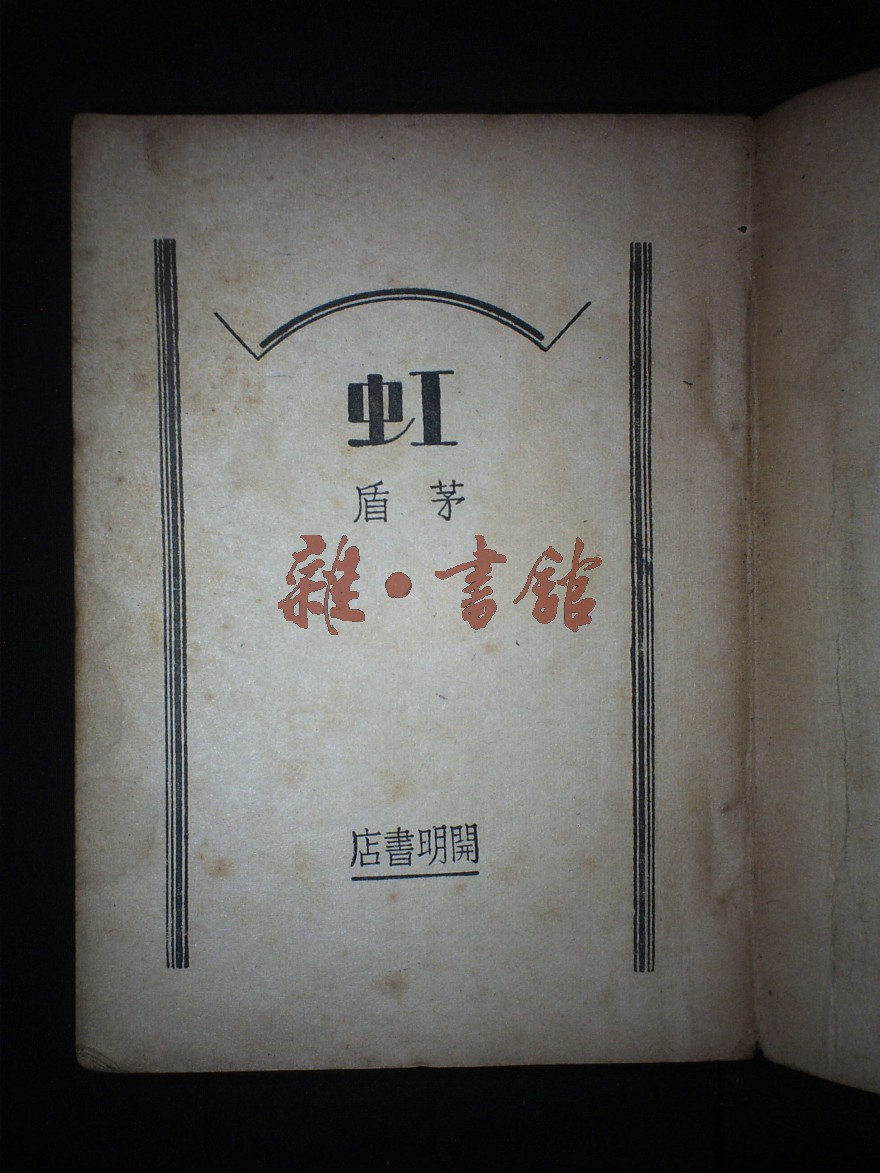 虹
茅盾
雜·書館
開明書店